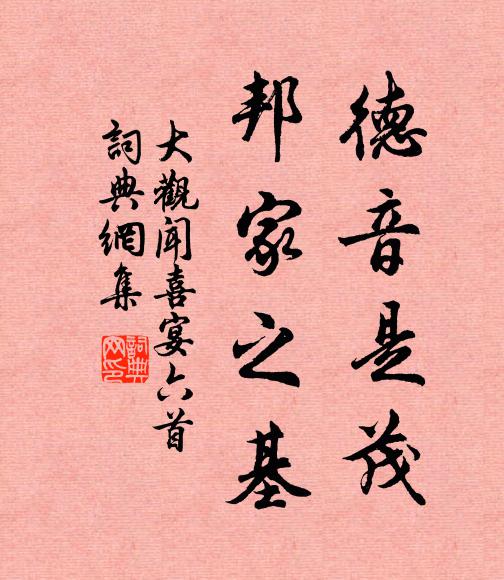 德音是茂
邦家之基
大觀聞喜宴六首
詞典網集
詞典
网印